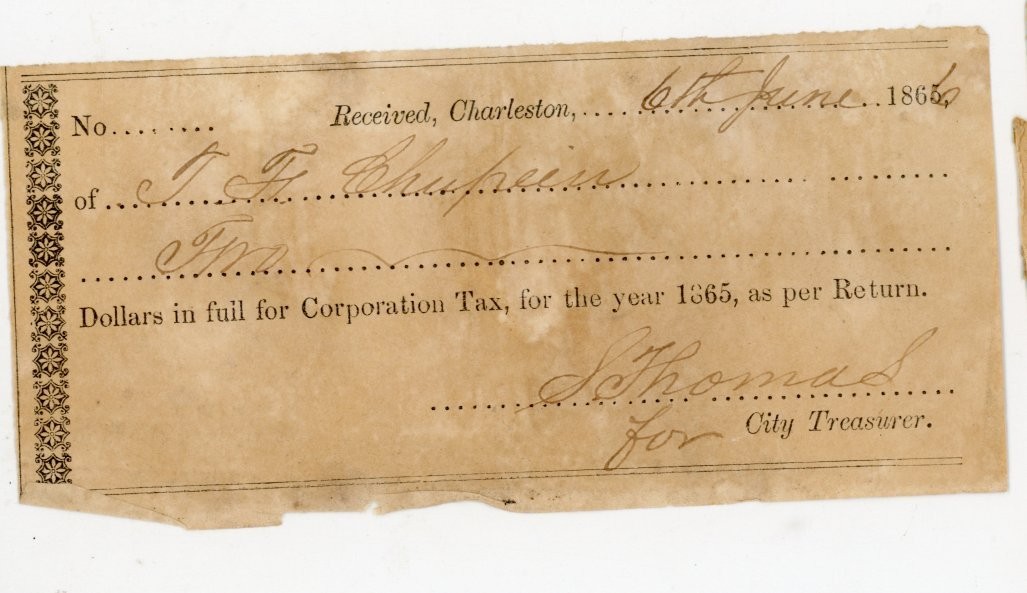 No........ Received, Charleston, 6th June 1866
of T. F. Chupein
Two
Dollars in full for Corporation Tax, for the year 1865, as per Return.
S Thomas
for City Treasurer.